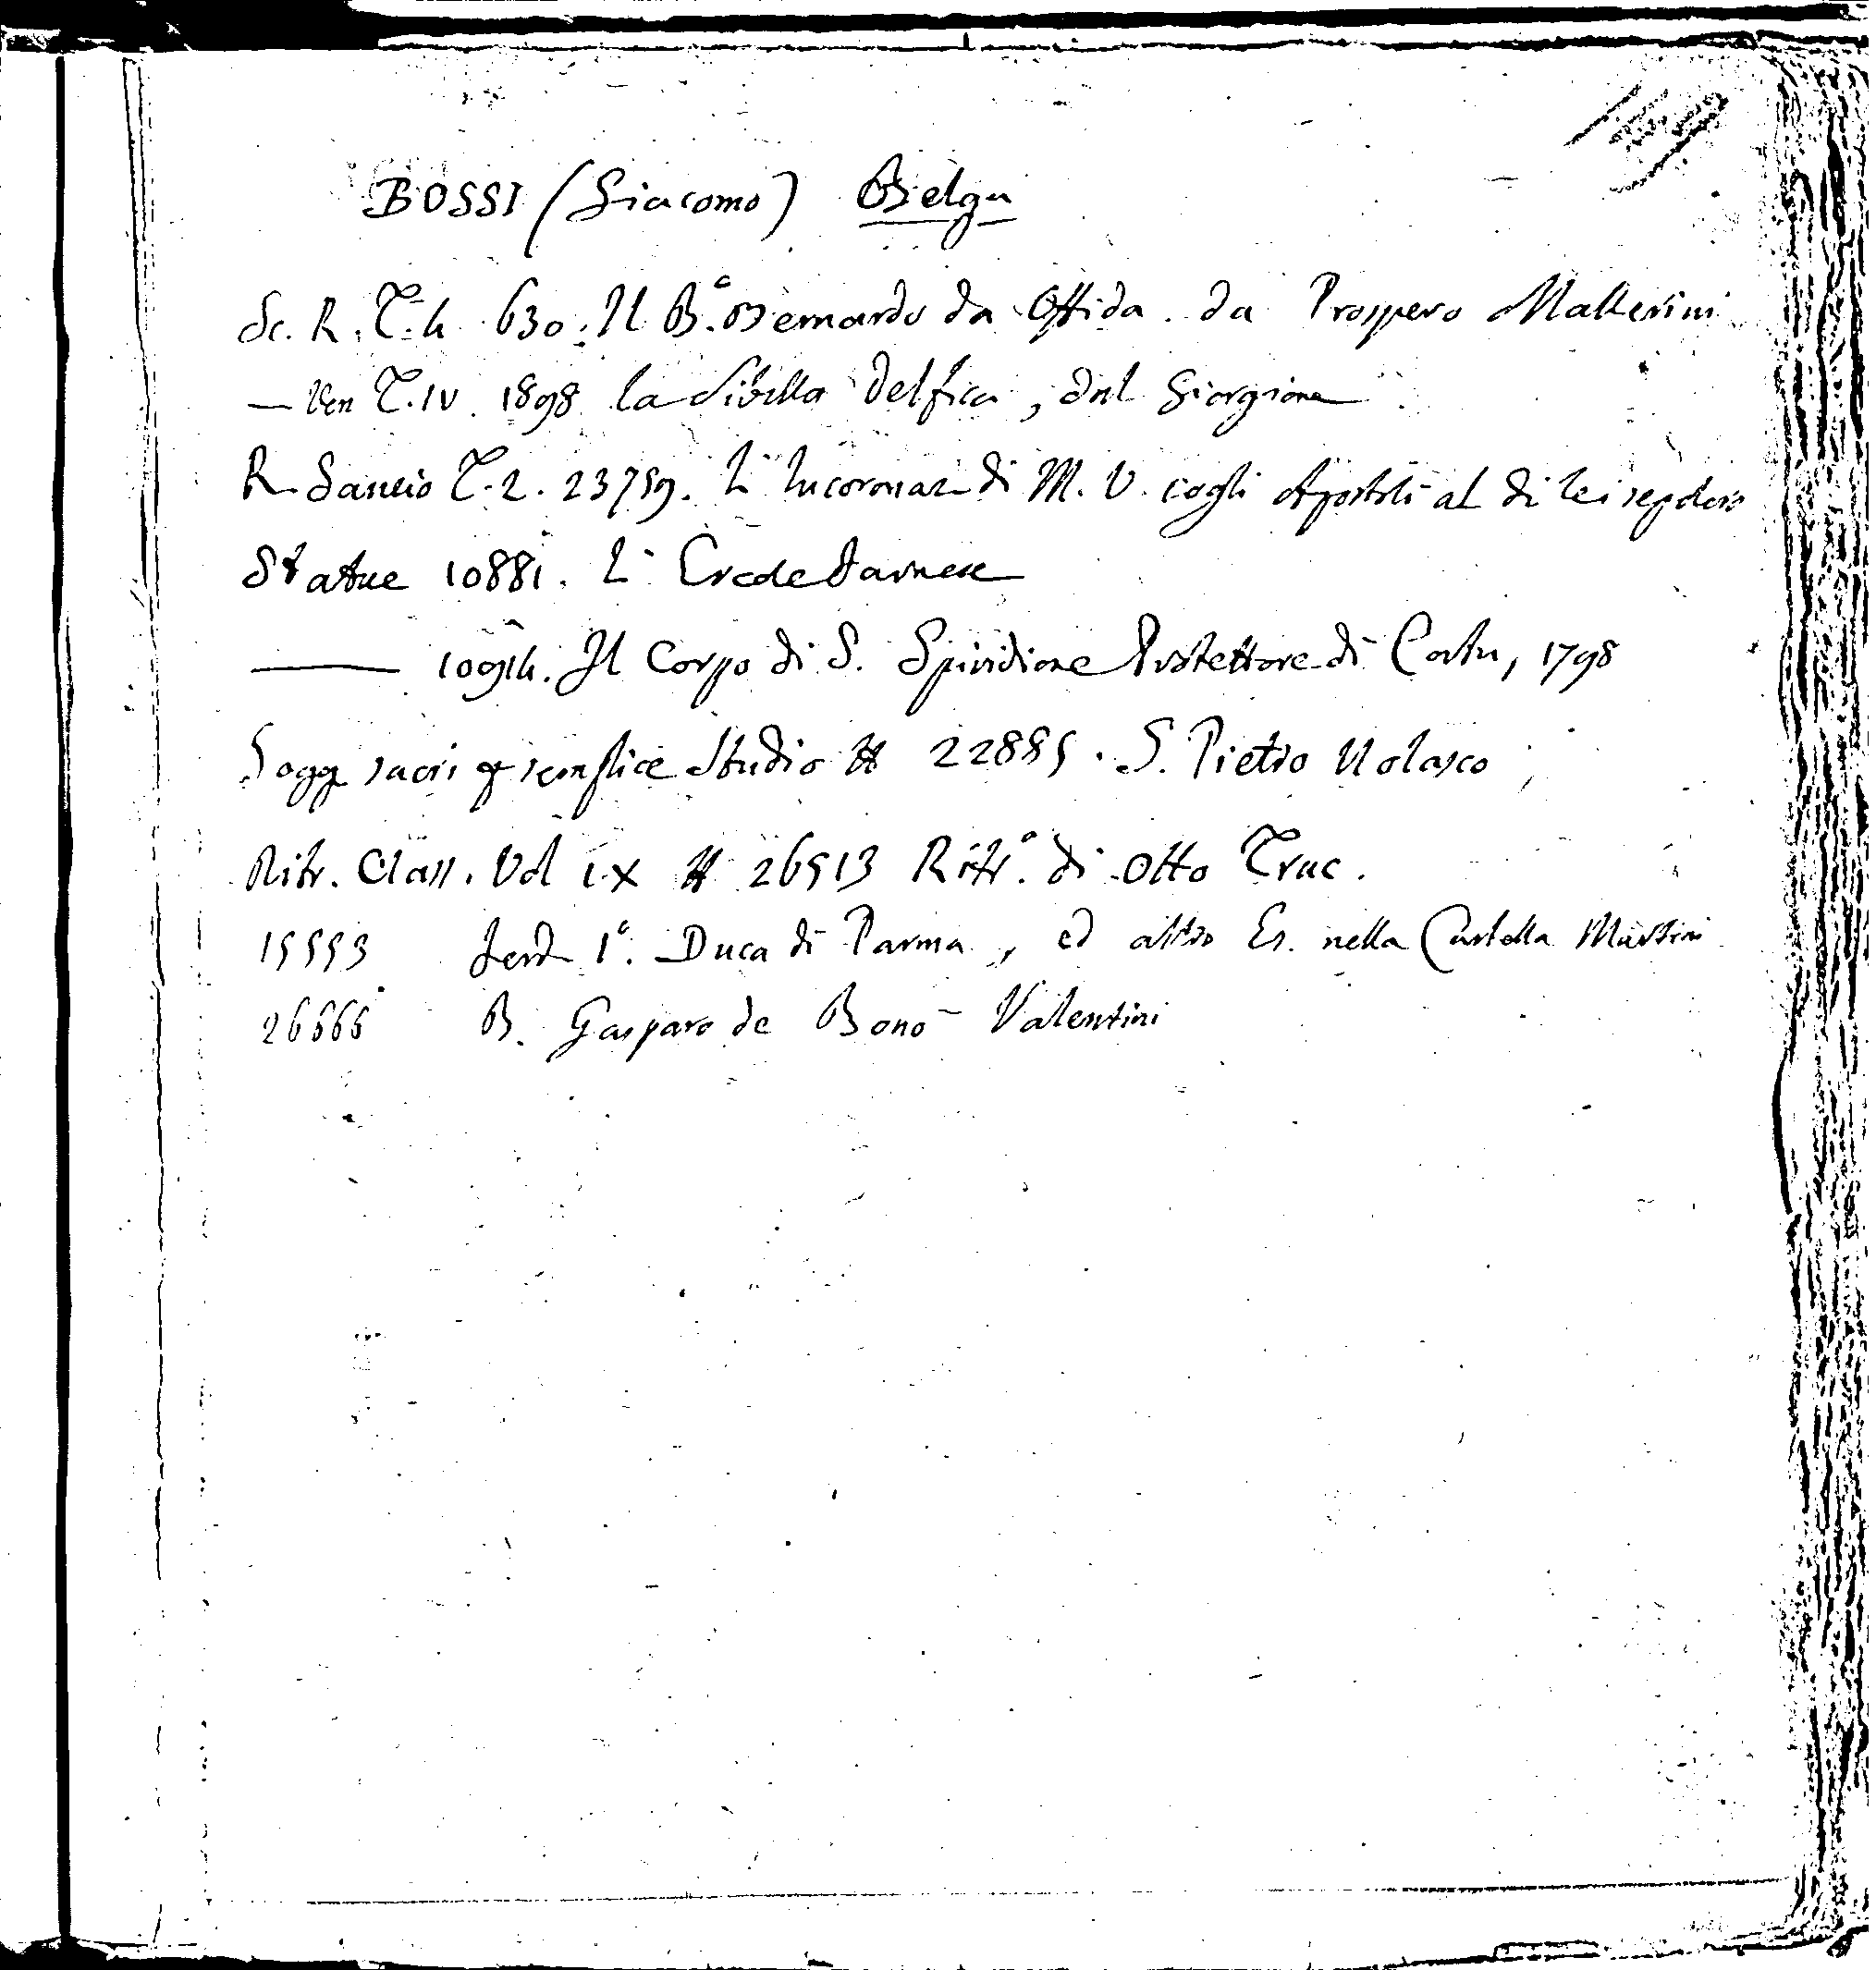 BOSSI (Giacomo) Belga
Sc. R. T. 4. 630. Il B.° Bernardo da Offida. da Prospero Mallerini
— Ven T. IV. 1898 la Sibilla Delfica, dal Giorgione
R. Sancio T. 2. 23759. L'Incoronaz di M. V. cogli Apostoli al di lei sepolcro
Statue 10881. L'Ercole Farnese
—— 10914. Il Corpo di S. Spiridione Protettore di Corfu, 1798
Sogg sacri semplice Studio # 22885. S. Pietro Nolasco
Ritr. Class. Vol IX # 26513 Ritr.° di Otto Truc.
15553 Ferd 1°. Duca di Parma, ed altro Es. nella Cartella Martini
26666 B. Gasparo de Bono - Valentini